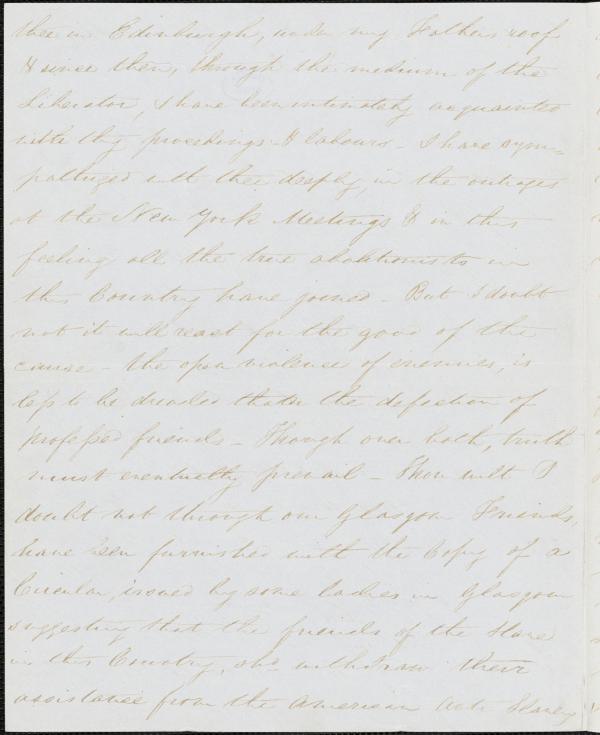 thee in Edinburgh, under my Fathers roof
& since then, through the medium of the
Liberator, I have been intimately acquainted
with thy proceedings & labours - I have sym=
pathized with thee deeply, in the outrages
at the New York Meetings & in this
feeling all the true abolitionists in
this Country have joined - But I doubt
not it will react for the good of the
cause - the open violence of enemies, is
less to be dreaded than the defection of
professed friends - Though over both, truth
must eventually prevail - Thou wilt I
doubt not through our Glasgow Friends,
have been furnished with the Copy of a
Circular, issued by some ladies in Glasgow
suggesting that the friends of the Slave
in this Country, shd withdraw their
assistance from the American Anti Slavery